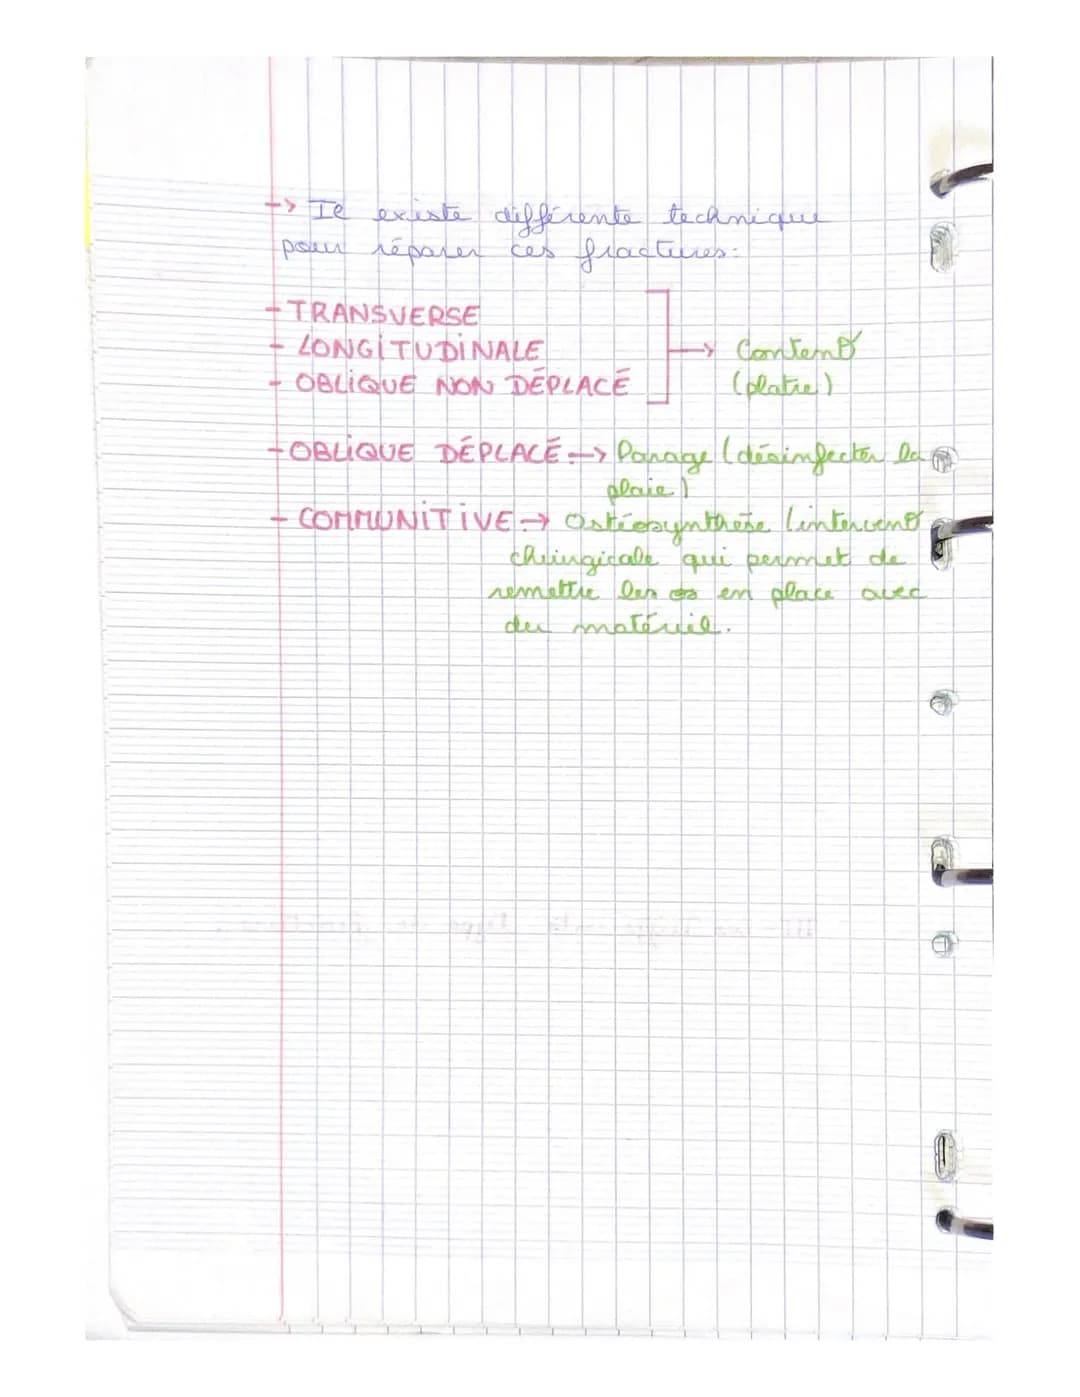 -> Il existe différente technique
pour réparer ces fractures:
- TRANSVERSE
- LONGITUDINALE
- OBLIQUE NON DÉPLACÉ
-> Content°
(platre)
- OBLIQUE DÉPLACÉ -> Parage (désinfecter la
plaie)
- COMMUNITIVE -> Ostéosynthèse (intervent°
chirurgicale qui permet de
remettre les os en place avec
du matériel.